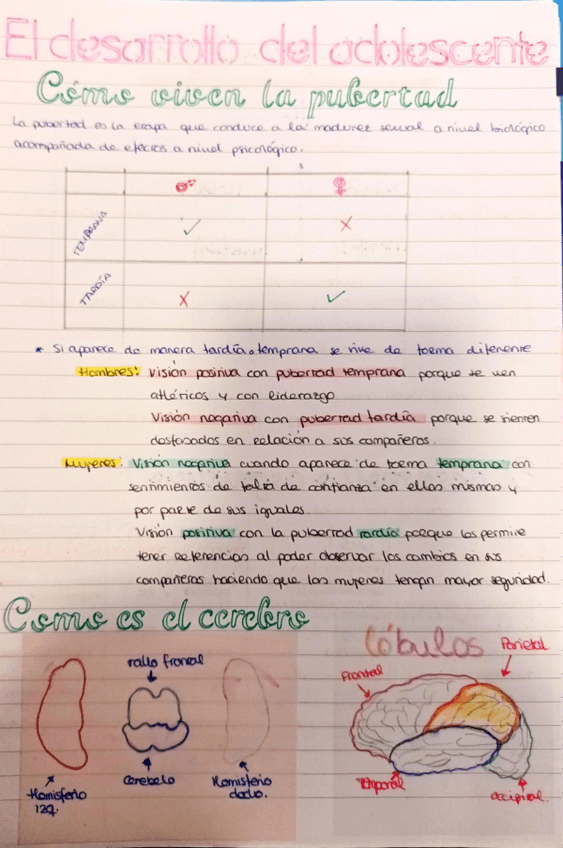 El desarrollo del adolescente
Cómo viven la pubertad
La pubertad es la etapa que conduce a la madurez sexual a nivel biológico
acompañada de efectos a nivel psicológico.
TEMPRANA
TARDÍA
* Si aparece de manera tardía o temprana se vive de forma diferente
Hombres: Visión positiva con pubertad temprana porque se ven
atléticos y con liderazgo
Visión negativa con pubertad tardía porque se sienten
desfasados en relación a sus compañeros.
Mujeres: Visión negativa cuando aparece de forma temprana con
sentimientos de falta de confianza en ellas mismas y
por parte de sus iguales.
Visión positiva con la pubertad tardía porque les permite
tener referencias al poder observar los cambios en sus
compañeras haciendo que las mujeres tengan mayor seguridad.
Como es el cerebro
tallo fronal
Cerebelo
Hemisferio
izq.
Hemisferio
Lóbulos
Frontal
Parietal
Temporal
occipital